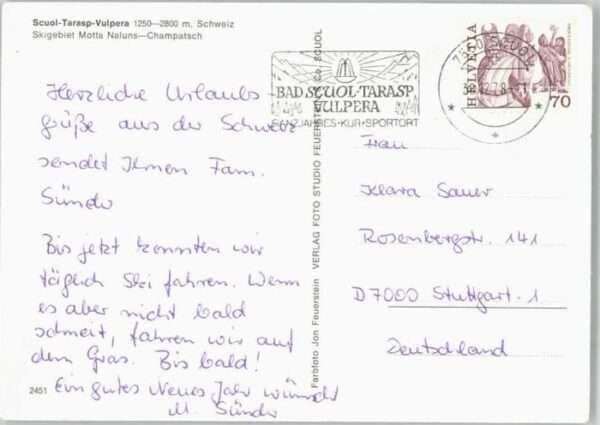 Scuol-Tarasp-Vulpera 1250—2800 m, Schweiz
Skigebiet Motta Naluns—Champatsch
Herzliche Urlaubs
grüße aus der Schweiz
sendet Ihnen Fam.
Sündo
Bis jetzt konnten wir
täglich Ski fahren. Wenn
es aber nicht bald
schneit, fahren wir auf
dem Gras. Bis bald!
Ein gutes Neues Jahr wünscht
M. Sündo
2451
Farbfoto Jon Feuerstein VERLAG FOTO STUDIO FEUERSTEIN & Co. SCUOL
BAD SCUOL·TARASP
VULPERA
GANZJAHRES·KUR·SPORTORT
7550 SCUOL
HELVETIA
70
Frau
Klara Sauer
Rosenbergstr. 141
D7000 Stuttgart 1
Deutschland